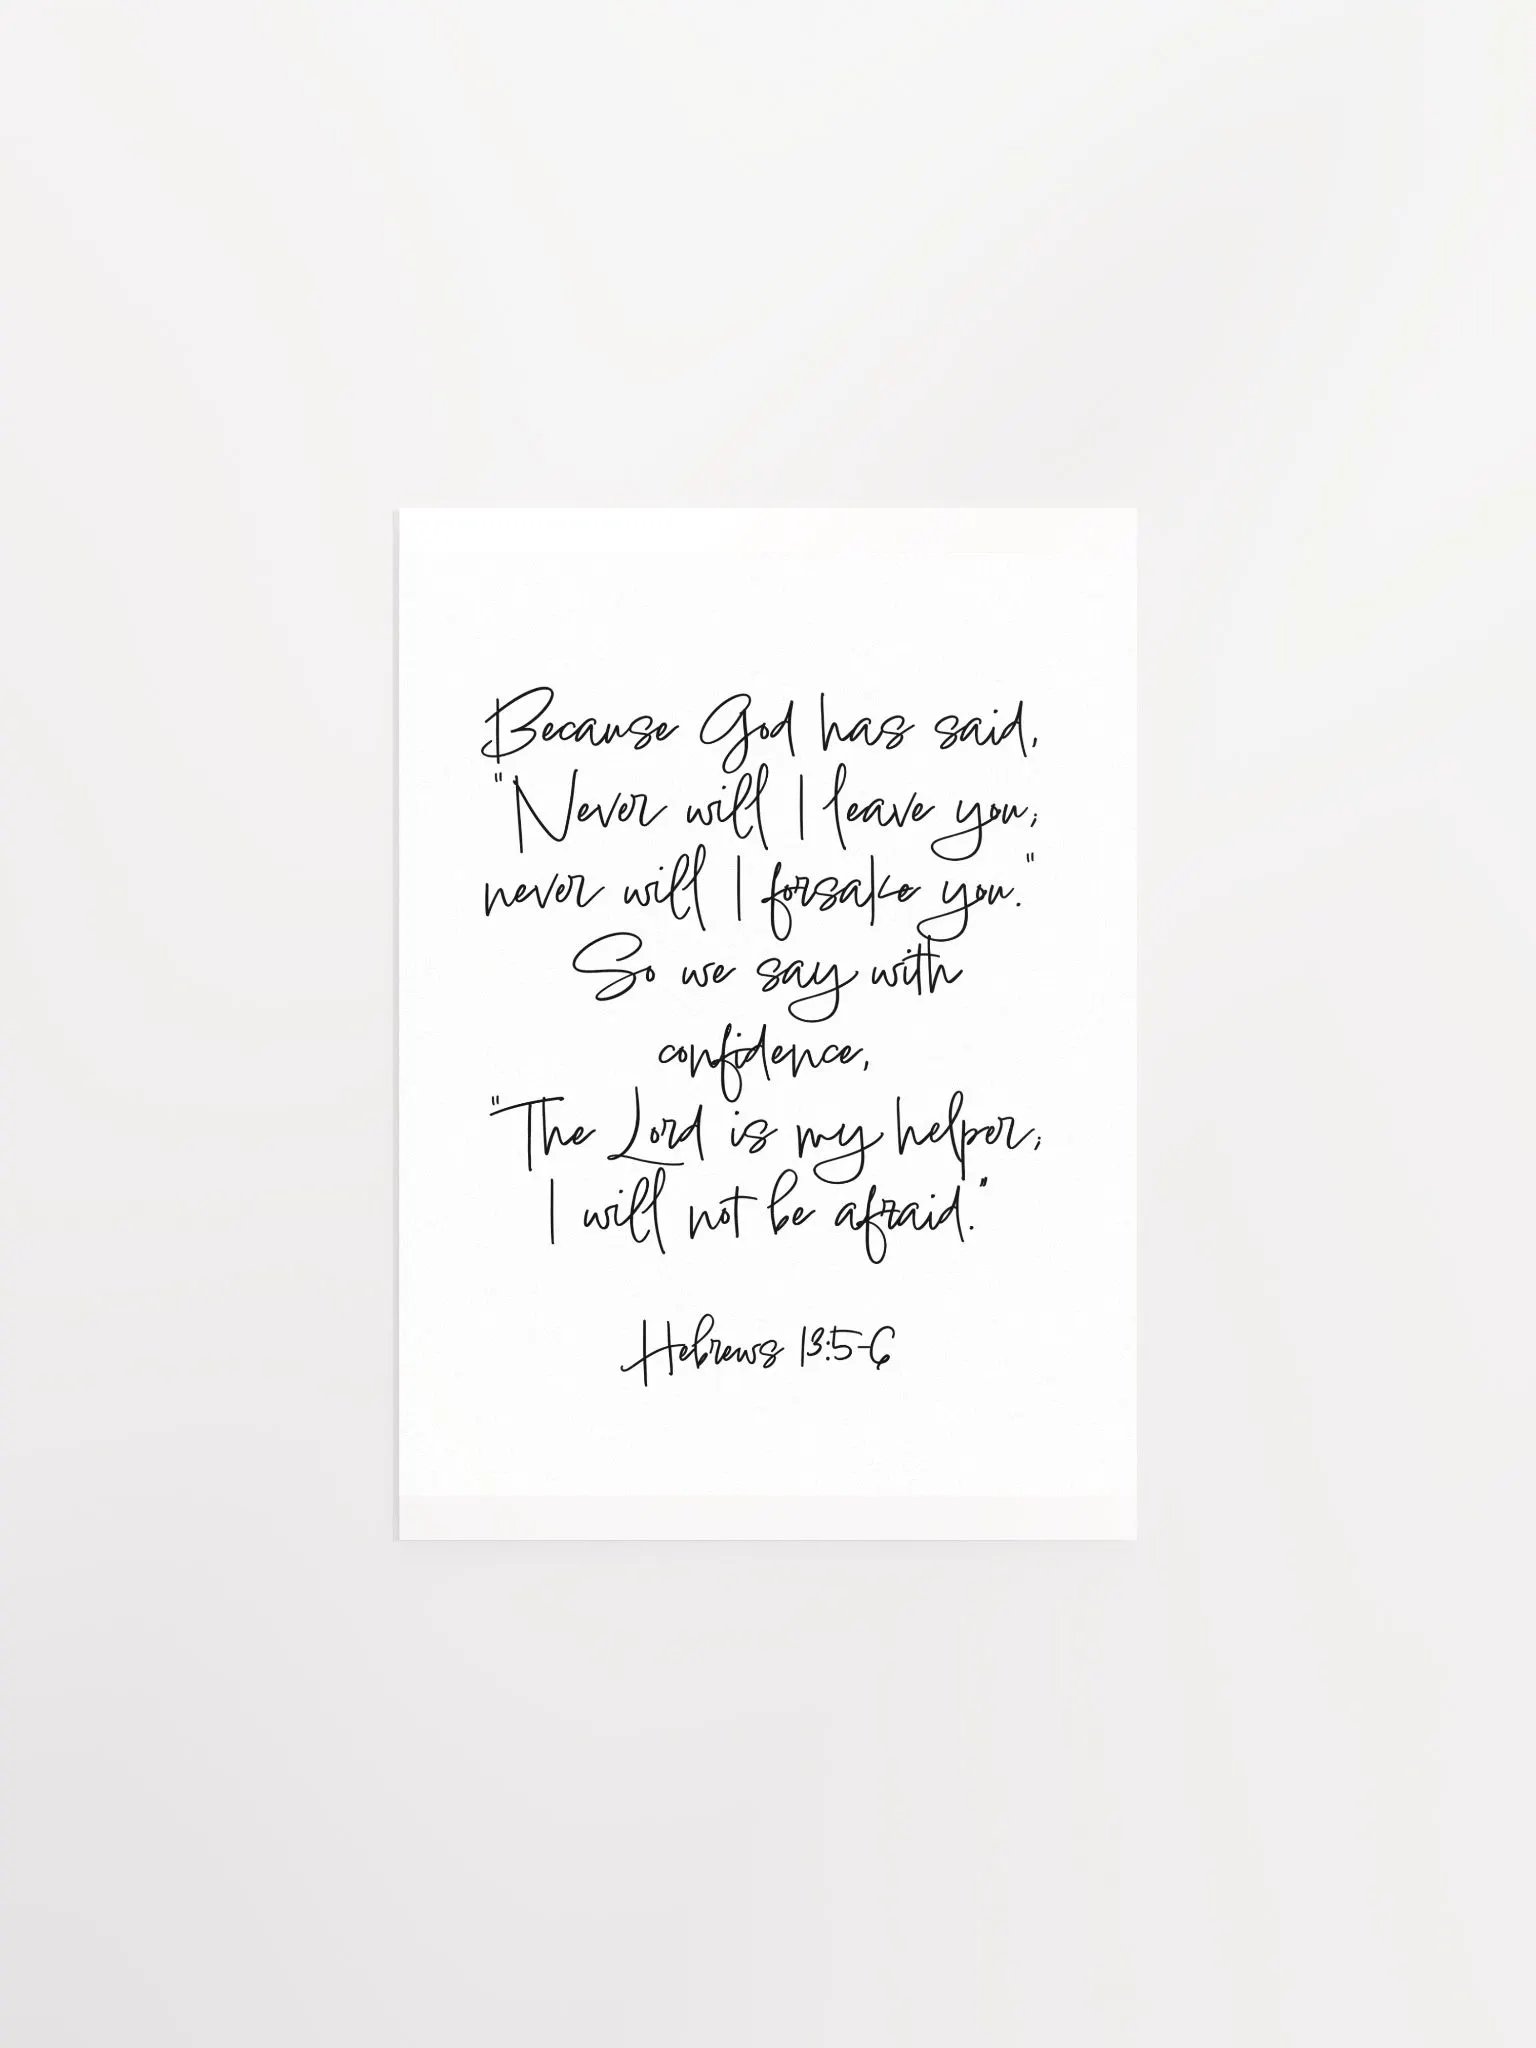 Because God has said,
"Never will I leave you;
never will I forsake you."
So we say with
confidence,
"The Lord is my helper;
I will not be afraid."
Hebrews 13:5-6